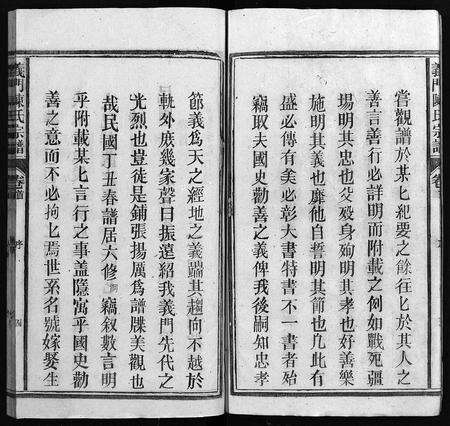 義門陳氏宗譜
嘗觀譜於某匕紀要之餘往匕於其人之
善言善行必詳明而附載之例如戰死疆
場明其忠也父殁身殉明其孝也好善樂
施明其義也靡他自誓明其節也凢此有
盛必傳有美必彰大書特書不一書者殆
竊取夫國史勸善之義俾我後嗣知忠孝
節義爲天之經地之義端其趨向不越於
軌外庶幾家聲日振遠紹我義門先代之
光烈也豈徒是鋪張揚厲爲譜牒美觀也
哉民國丁丑春譜居六修竊叙數言明
乎附載某匕言行之事盖隱寓乎國史勸
善之意而不必拘匕焉世系名號嫁娶生
義門陳氏宗譜 卷首 序 四